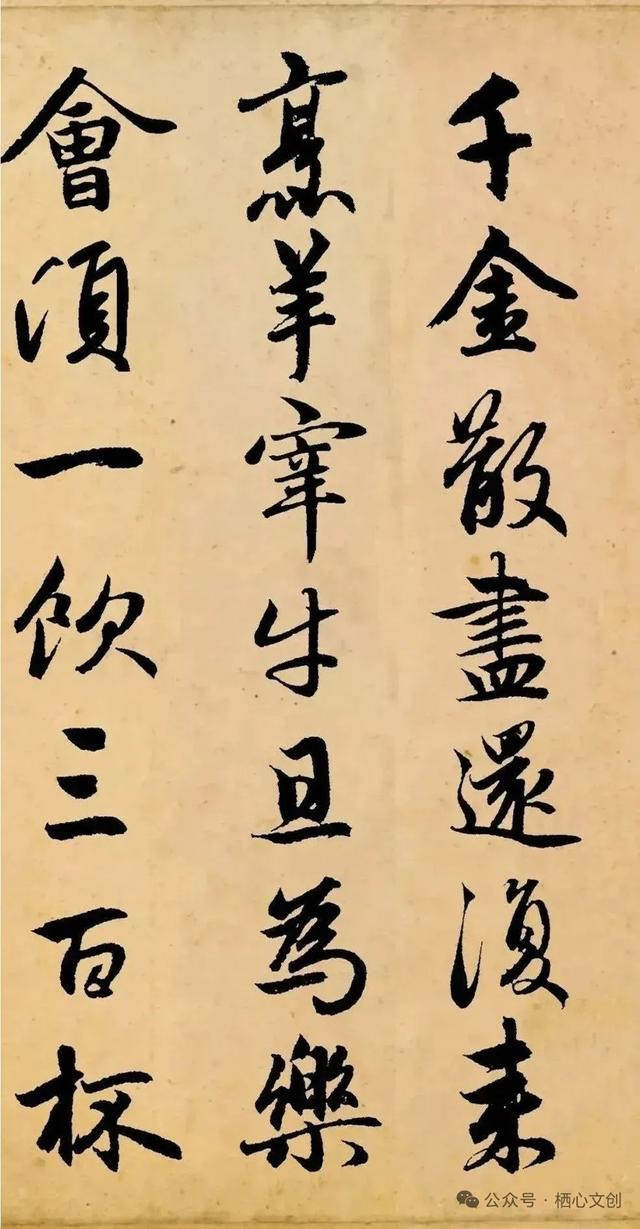 千金散盡還復来
烹羊宰牛且為樂
會須一飲三百杯
公众号·栖心文创